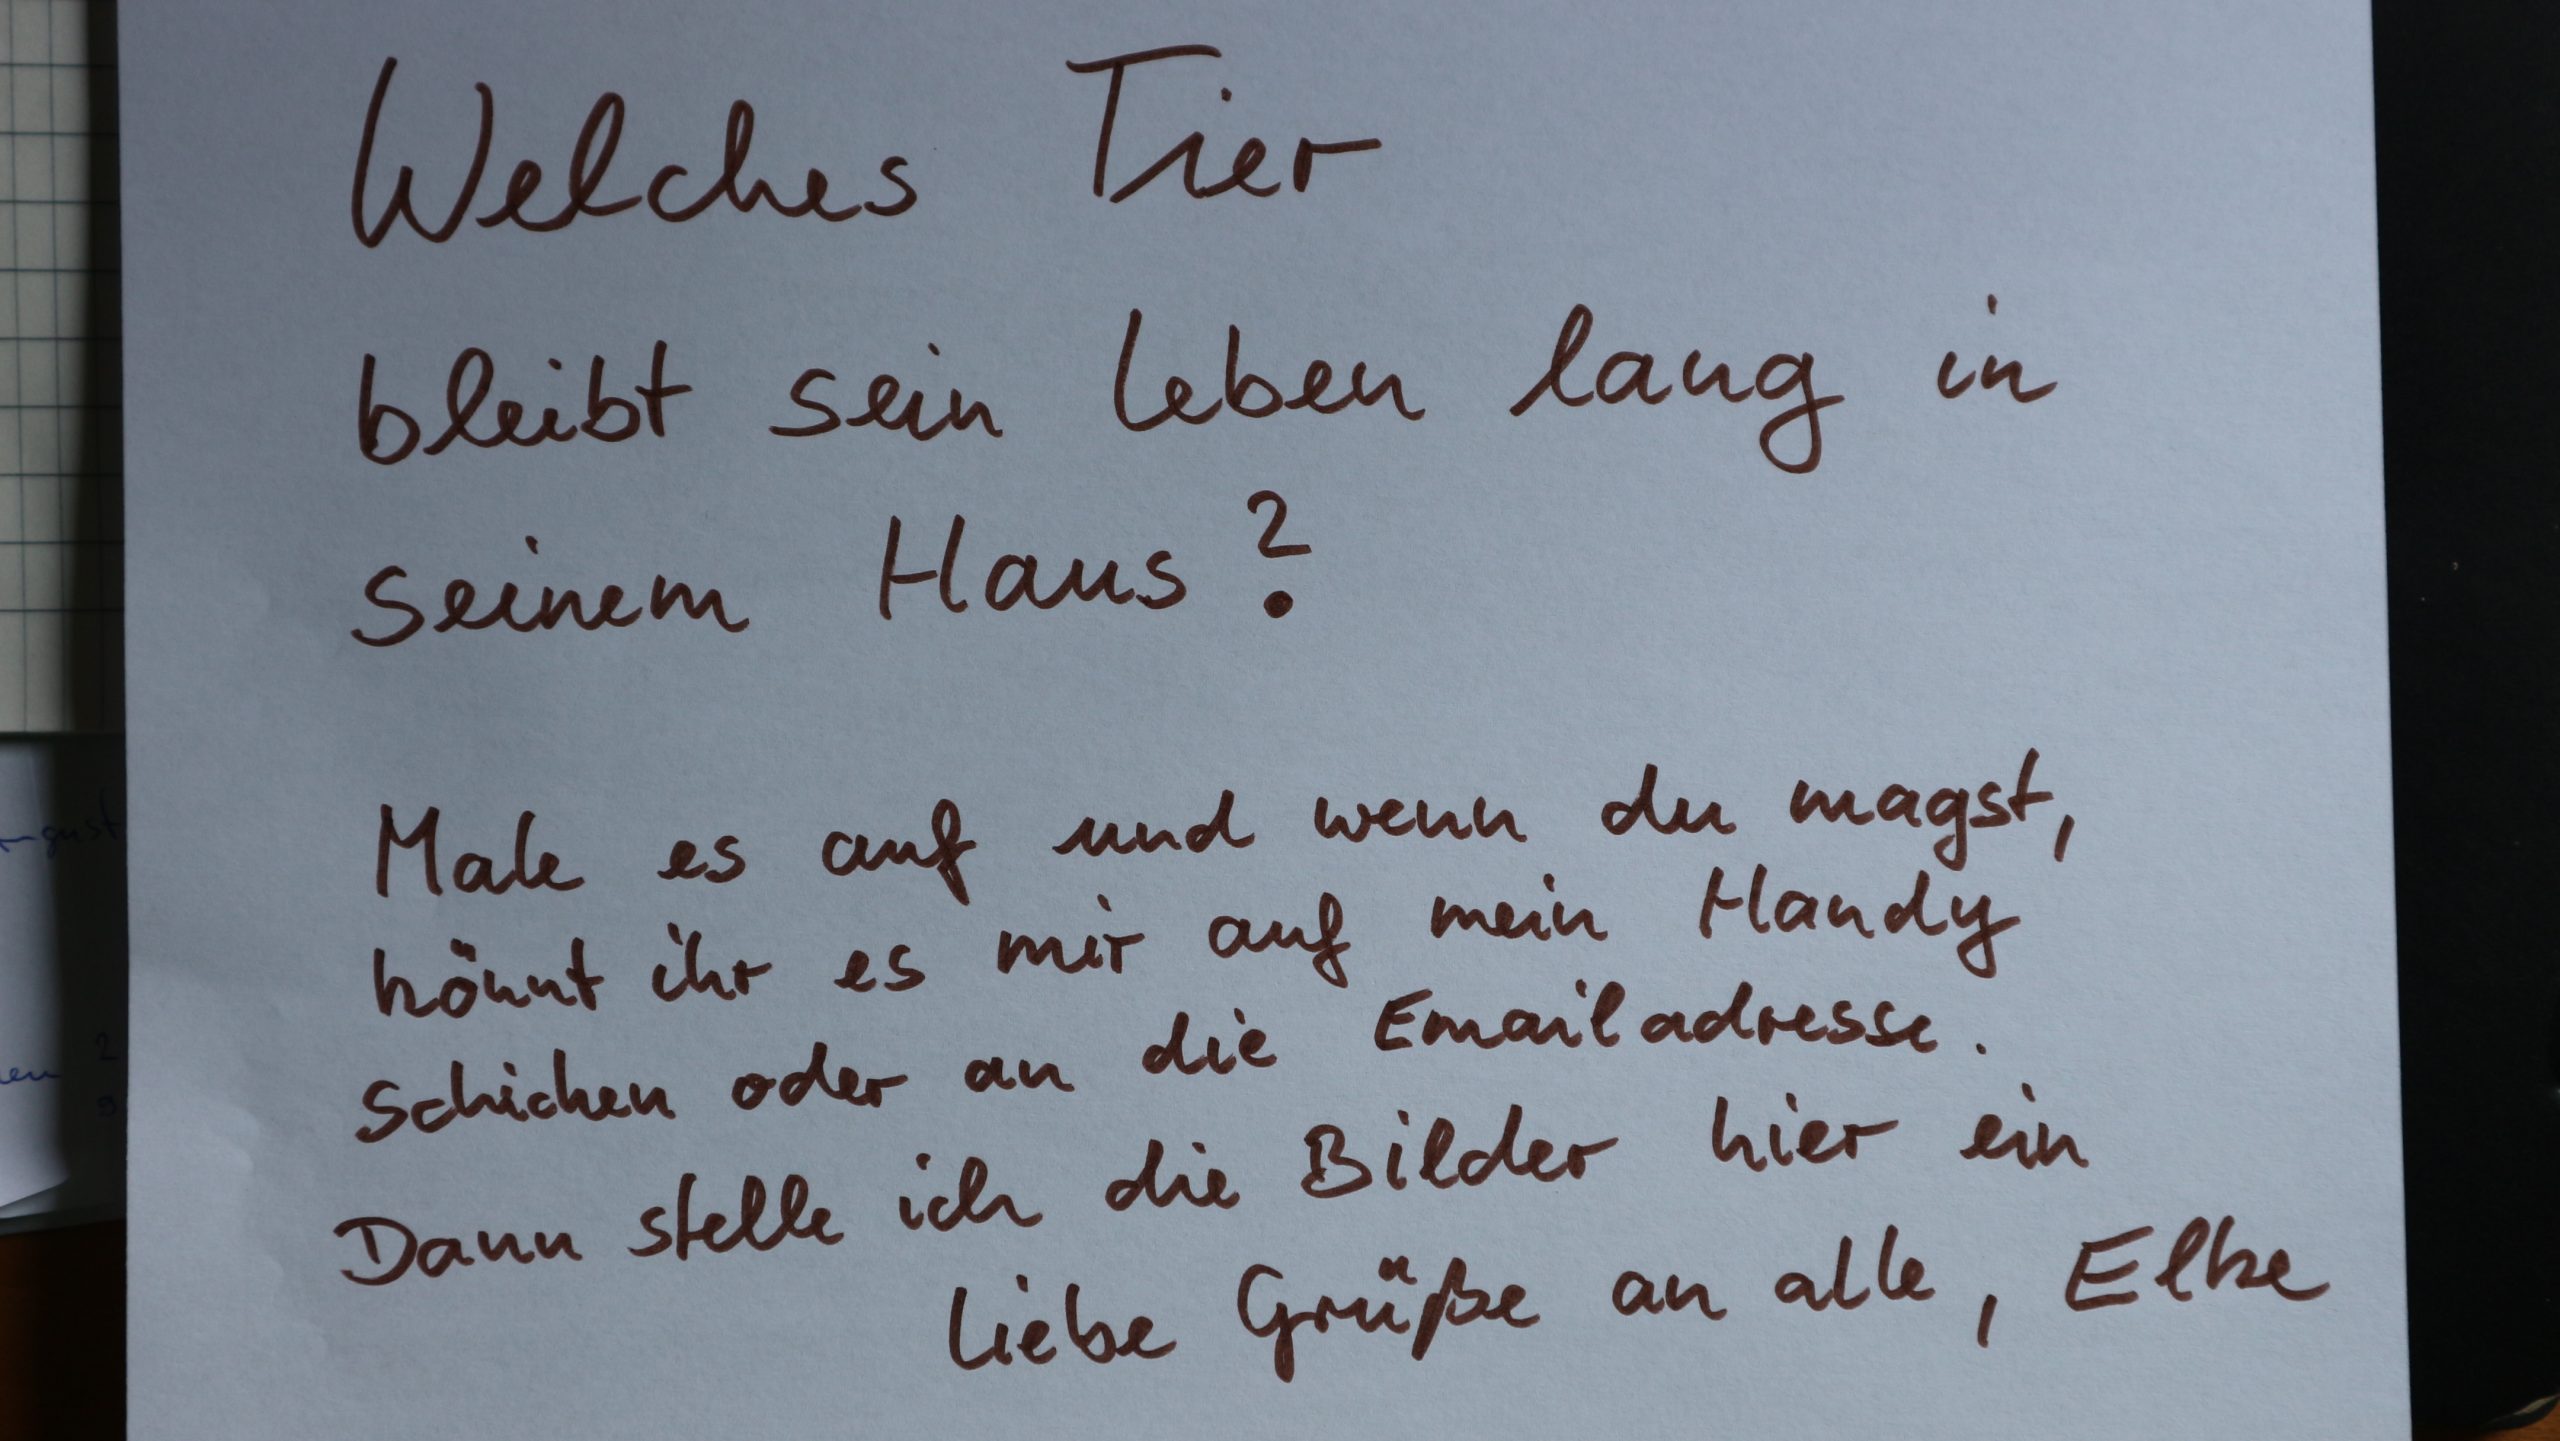 Welches Tier
bleibt sein Leben lang in
seinem Haus?
Male es auf und wenn du magst,
könnt ihr es mir auf mein Handy
schicken oder an die Emailadresse.
Dann stelle ich die Bilder hier ein
Liebe Grüße an alle, Elke